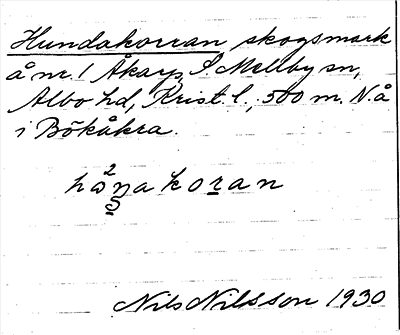 Hundakorran skogsmark
å nr. 1 Åkarp, S. Mellby sn,
Albo hd, Krist. l., 500 m. N. å
i Bökåkra.
hɷ²ŋa koran
Nils Nilsson 1930